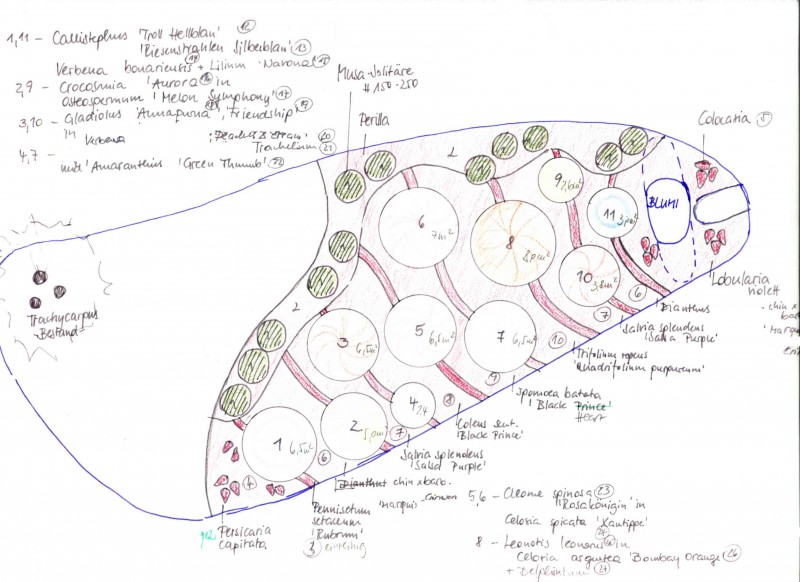 1,11 – Callistephus 'Troll Hellblau' 12
'Riesenstrahlen Silberblau' 13
Verbena bonariensis 14 + Lilium 'Navona' 15
2,9 – Crocosmia 'Aurora' 16 in
Osteospermum 'Melon Symphony' 17
3,10 – Gladiolus 'Annapurna', 'Friendship' 19
in Verbena
20
Trachelium 21
4,7 –
mit 'Amaranthus 'Green Thumb' 22
Musa-Solitäre
# 150-250
Perilla
Colocasia 5
L
L
BLUMI
Trachycarpus
Bestand
1 6,5m²
2 5,0m²
3 6,5m²
4 2,4
5 6,5m²
6 7m²
7 6,5m²
8
9
10 3,8m²
11
6
7
8
9
10
7
6
Lobularia
violett
- chin x
Dianthus
Salvia splendens
'Salsa Purple'
Trifolium repens
'Quadrifolium purpureum'
Ipomoea batata
'Black Prince'
Heart
Coleus scut.
'Black Prince'
Salvia splendens
'Salsa Purple'
Dianthus chin x barb.
Pennisetum
setaceum
'Rubrum'
3
Persicaria
capitata
5,6 – Cleome spinosa 23
'Rosakönigin' in
Celosia spicata 'Xantippe'
8 – Leonotis leonurus in
Celosia argentea 'Bombay Orange' 26
+ Delphinium 27